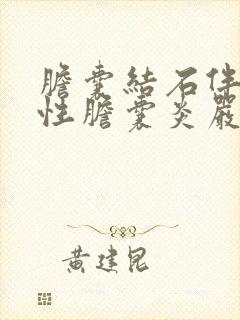 膽囊結石伴
性膽囊炎嚴
黃建昆